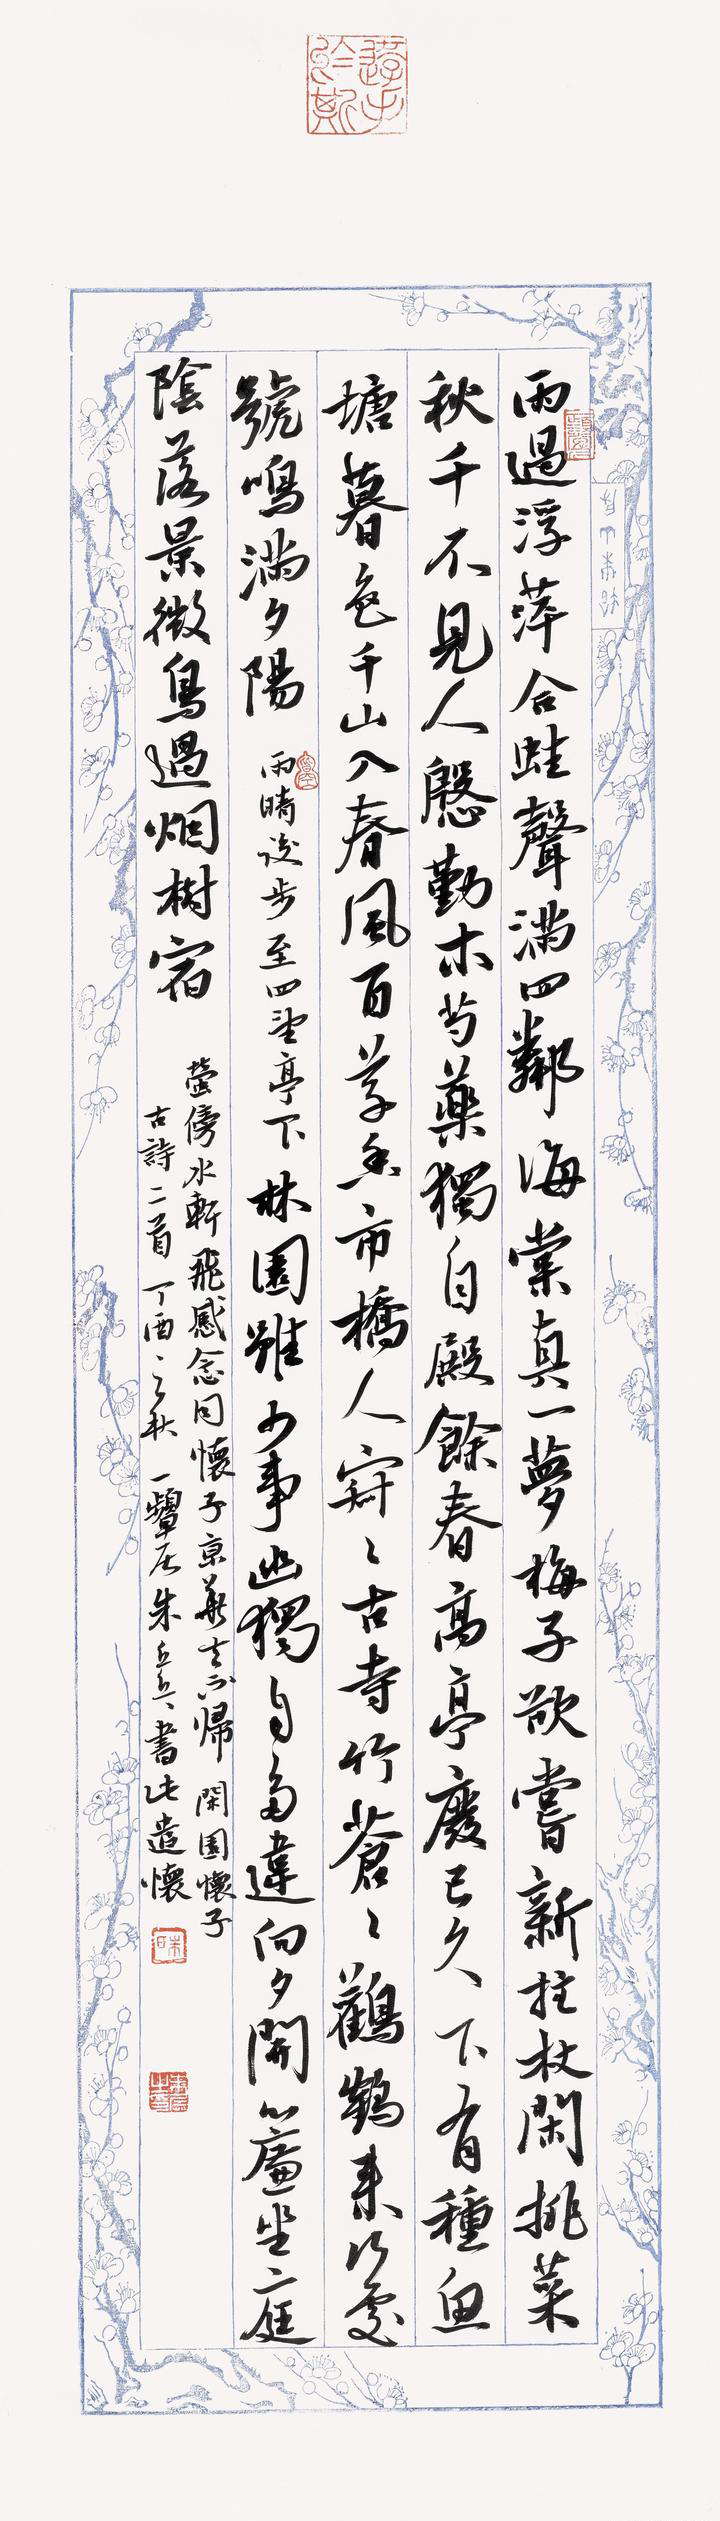 雨過浮萍合蛙聲滿四鄰海棠真一夢梅子欲嘗新拄杖閑挑菜
秋千不見人慇勤木芍藥獨自殿餘春高亭廢已久下有種魚
塘暮色千山入春風百草香市橋人寂〻古寺竹蒼〻鸛鶴來何處
號鳴滿夕陽
雨晴後步至四望亭下
林園雖少事幽獨自多違向夕開簾坐庭
陰落景微鳥過烟樹宿
螢傍水軒飛感念同懷子京華去不歸 閑園懷子
古詩二首 丁酉之秋 一顰居朱兵書此遣懷